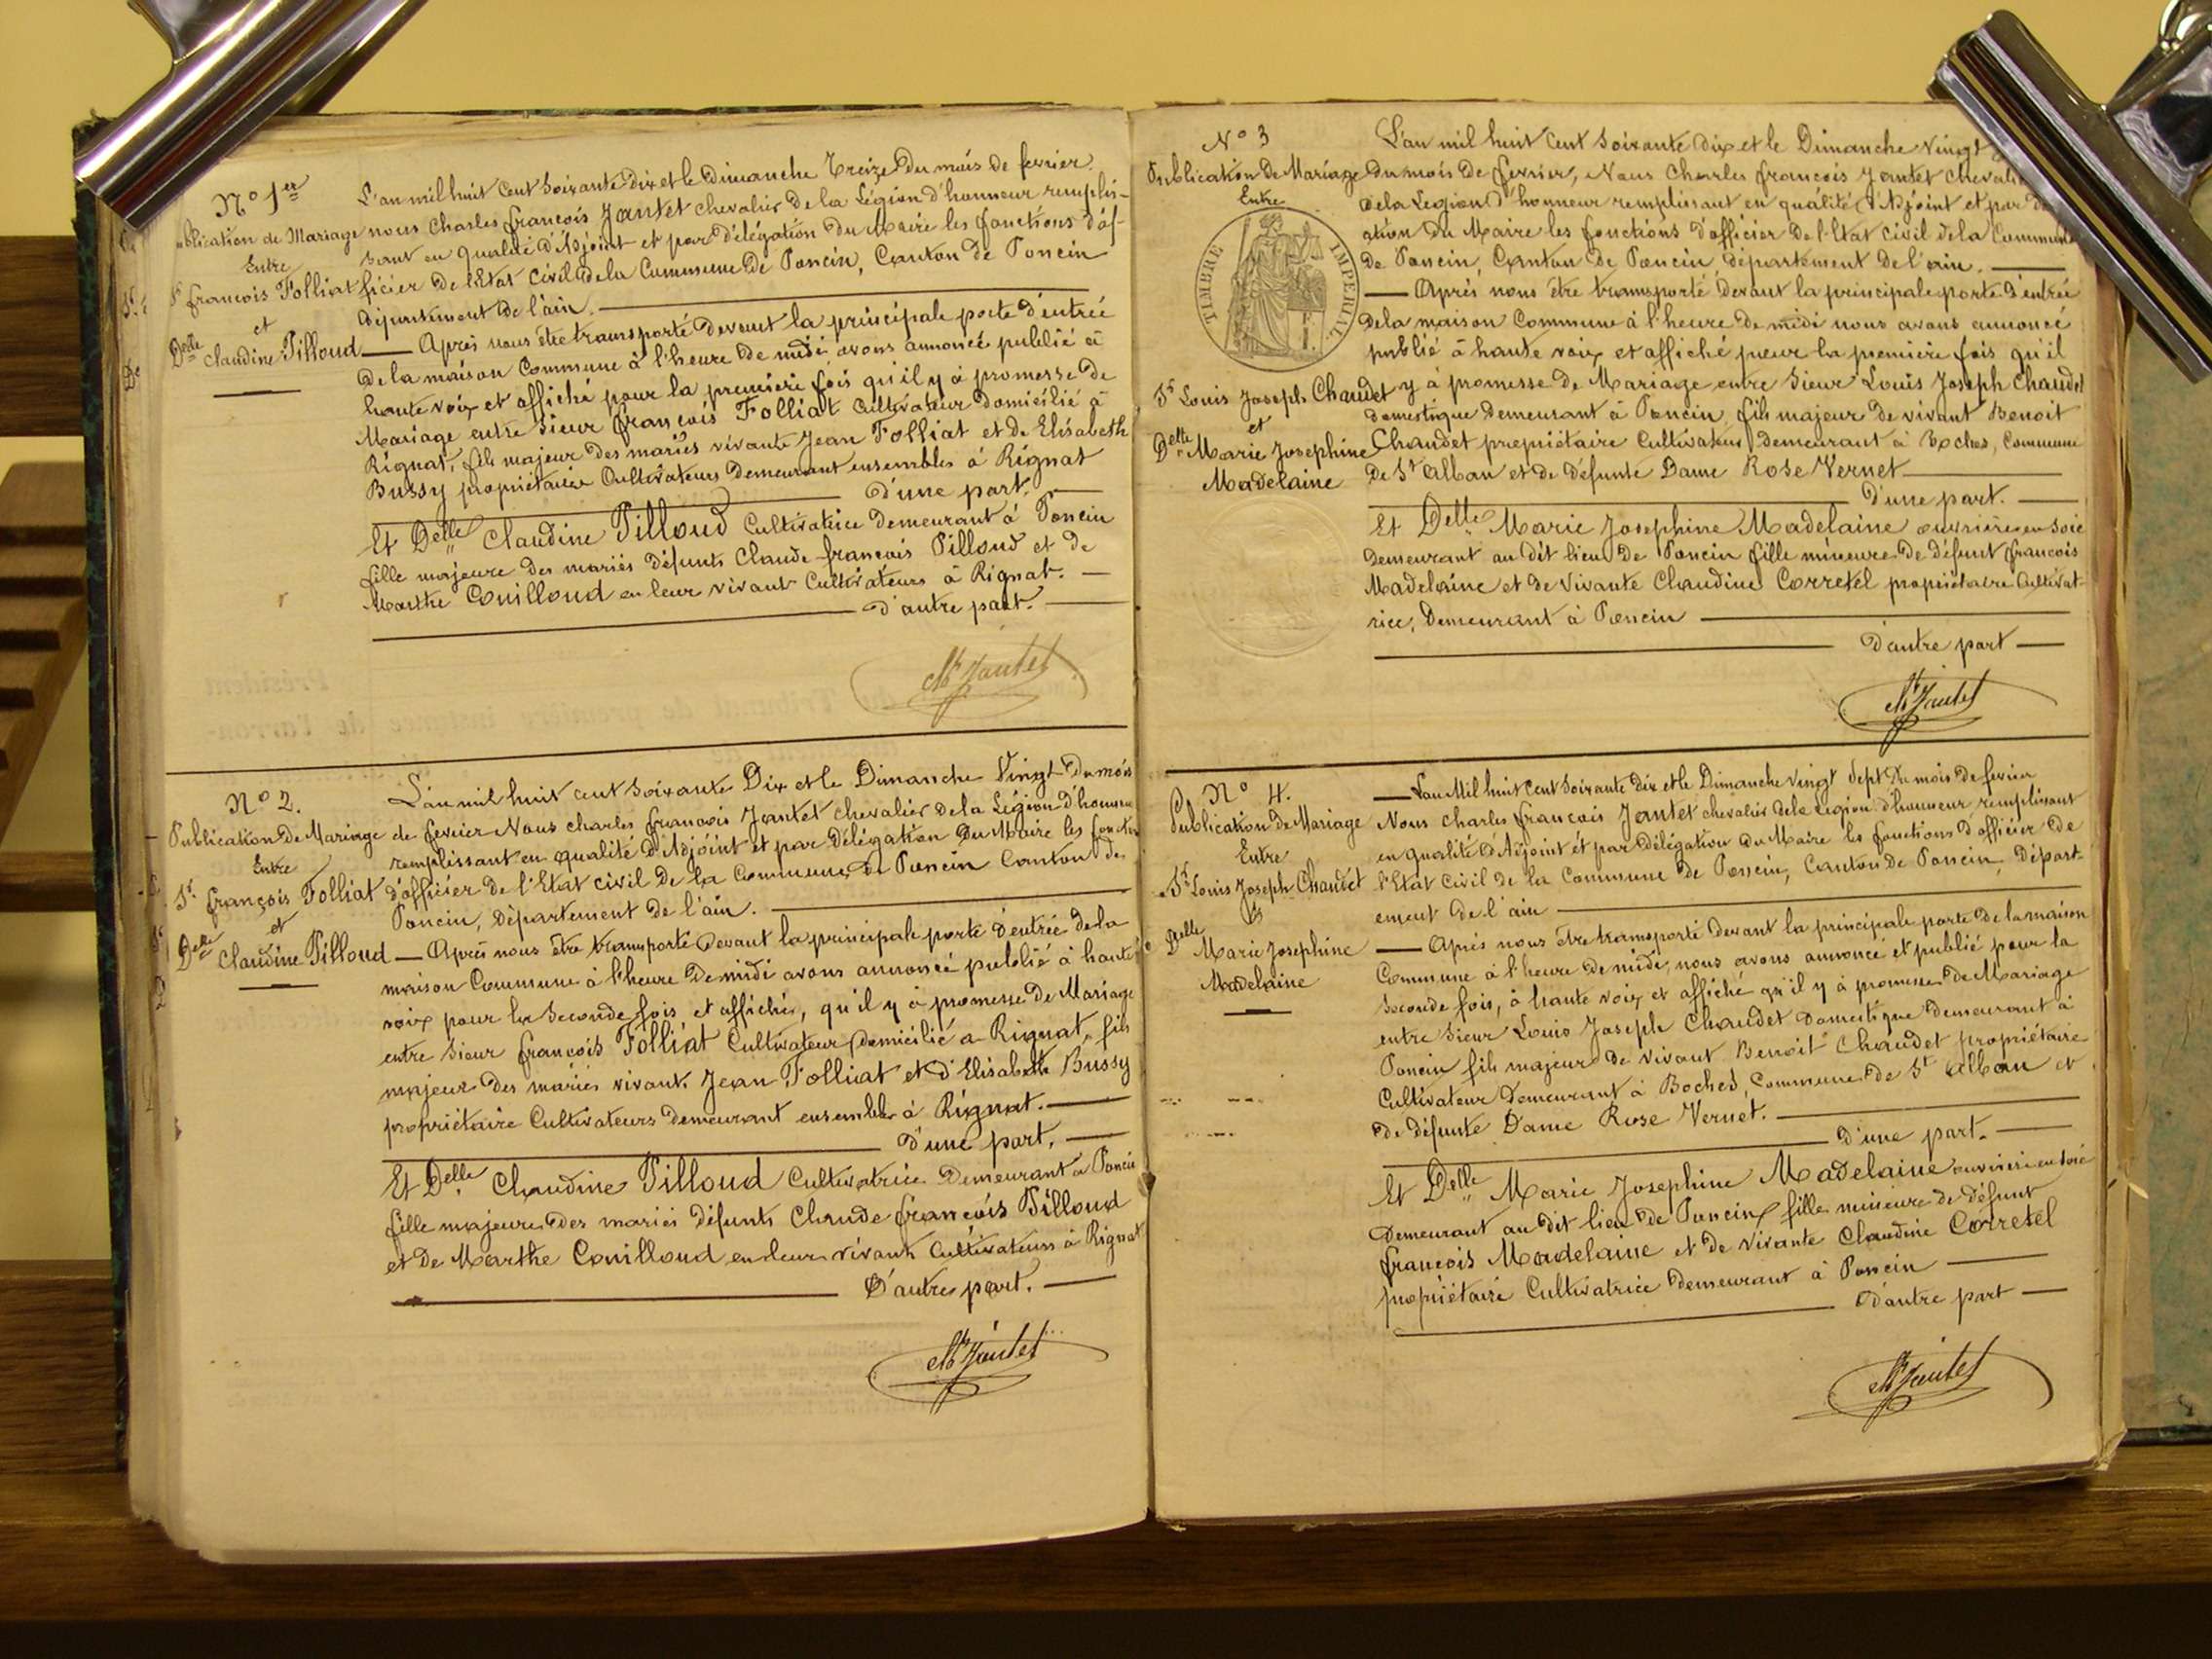 N° 1er
Publication de Mariage
Entre
Sr françois Folliat
et
Delle Claudine Pilloud
L'an mil huit cent soixante Dix et le Dimanche Treize du mois de fevrier
nous Charles françois Jantet chevalier de la Légion d'honneur remplis-
sant en qualité d'Adjoint et par délégation du Maire les fonctions d'of-
ficier de l'Etat civil de la Commune de Poncin, Canton de Poncin
département de l'ain.
Après nous être transporté devant la principale porte d'entrée
de la maison Commune à l'heure de midi avons annoncé publié à
haute voix et affiché pour la première fois qu'il y à promesse de
Mariage entre Sieur françois Folliat Cultivateur domicilié à
Rignat, fils majeur des mariés vivants Jean Folliat et de Elisabeth
Bussy propriétaire Cultivateurs demeurant ensembles à Rignat
d'une part.
Et Delle Claudine Pilloud Cultivatrice demeurant à Poncin
fille majeure des mariés défunts Claude françois Pilloud et de
Marthe Couilloud en leur vivant Cultivateurs à Rignat.
d'autre part.
Ch Jantet
N° 2.
Publication de Mariage
Entre
Sr françois Folliat
et
Delle Claudine Pilloud
L'an mil huit cent soixante Dix et le Dimanche Vingt du mois
de fevrier Nous charles françois Jantet chevalier de la Légion d'honneur
remplissant en qualité d'Adjoint et par délégation du Maire les fonctions
d'officier de l'Etat civil de la Commune de Poncin Canton de
Poncin, Département de l'ain.
Après nous être transporté devant la principale porte d'entrée de la
maison Commune à l'heure de midi avons annoncé publié à haute
voix pour la Seconde fois et affiché, qu'il y à promesse de Mariage
entre Sieur françois Folliat Cultivateur domicilié a Rignat, fils
majeur des mariés vivants Jean Folliat et d'Elisabeth Bussy
propriétaire Cultivateurs demeurant ensemble à Rignat.
d'une part.
Et Delle Claudine Pilloud Cultivatrice Demeurant à Poncin
fille majeure des mariés défunts Claude françois Pilloud
et de Marthe Couilloud en leur vivant Cultivateurs à Rignat
D'autre part.
Ch Jantet
N° 3
Publication de Mariage
Entre
TIMBRE IMPERIAL
Sr Louis Joseph Chaudet
et
Delle Marie Josephine
Madelaine
L'an mil huit cent soixante dix et le Dimanche Vingt
du mois de fevrier, Nous Charles francois Jantet chevalier
de la Legion d'honneur remplissant en qualité d'Adjoint et par
ation du Maire les fonctions d'officier de l'Etat civil de la Commune
de Poncin, Canton de Poncin, département de l'ain.
Après nous être transporté devant la principale porte d'entrée
de la maison Commune à l'heure de midi nous avons annoncé
publié à haute voix et affiché pour la premiere fois qu'il
y à promesse de Mariage entre Sieur Louis Joseph Chaudet
domestique demeurant à Poncin, fils majeur de vivant Benoit
Chaudet propriétaire Cultivateur demeurant à Boches, Commune
de St Alban et de défunte Dame Rose Vernet
d'une part.
Et Delle Marie Josephine Madelaine ouvrière en soie
demeurant au dit lieu de Poncin fille mineure de défunt françois
Madelaine et de Vivante Claudine Corretel propriétaire Cultivat-
rice, Demeurant à Poncin
d'autre part
Ch Jantet
N° 4.
Publication de Mariage
Entre
Sr Louis Joseph Chaudet
Et
Delle Marie Josephine
Madelaine
L'an Mil huit Cent soixante dix et le Dimanche Vingt Sept Du mois de fevrier
Nous charles francois Jantet chevalier de la Legion d'honneur remplissant
en qualité d'Adjoint et par délégation du Maire les fonctions d'officier de
l'Etat Civil de la Commune de Poncin, Canton de Poncin, Départ-
ement de l'ain
Après nous être transporté devant la principale porte de la maison
Commune à l'heure de midi, nous avons annoncé et publié pour la
Seconde fois, à haute voix et affiché qu'il y à promesse de Mariage
entre Sieur Louis Joseph Chaudet Domestique demeurant à
Poncin fils majeur de vivant Benoit Chaudet propriétaire
Cultivateur demeurant à Boches, Commune de St Alban et
de défunte Dame Rose Vernet.
d'une part.
Et Delle Marie Josephine Madelaine ouvrière en soie
Demeurant au dit lieu de Poncin, fille mineure de défunt
françois Madelaine et de vivante Claudine Corretel
propriétaire Cultivatrice demeurant à Poncin
d'autre part
Ch Jantet